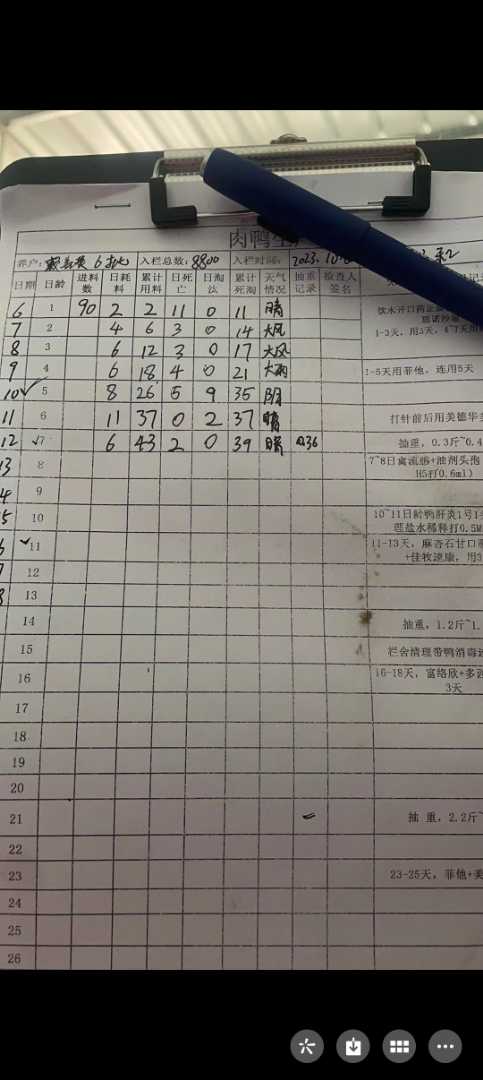 肉鸭生
养户: 6批 入栏总数: 8800 入栏时间: 2023.10.
日期 日龄 进料数 日耗料 累计用料 日死亡 日淘汰 累计死淘 天气情况 抽重记录 检查人签名
6 1 90 2 2 11 0 11 晴 饮水开口药
7 2 4 6 3 0 14 大风 1-3天,用3天,
8 3 6 12 3 0 17 大风
9 4 6 18 4 0 21 大雨 1-5天用菲他,连用5天
10✓ 5 8 26 5 9 35 阴
11 6 11 37 0 2 37 晴 打针前后用美德华
12 ✓7 6 43 2 0 39 晴 0.36 抽重,0.3斤~0.4
13 8 7~8日禽流感+油剂头孢
H5打0.6ml)
9
10 10~11日龄鸭肝炎1号1
理盐水稀释打0.5M
✓11 11-13天,麻杏石甘口
12 用3
13
14 抽重,1.2斤~1.
15 栏舍清理带鸭消毒
16 16-18天,富络欣+多
3天
17
18
19
20
21 抽 重,2.2斤~
22
23 23-25天,菲他+美
24
25
26